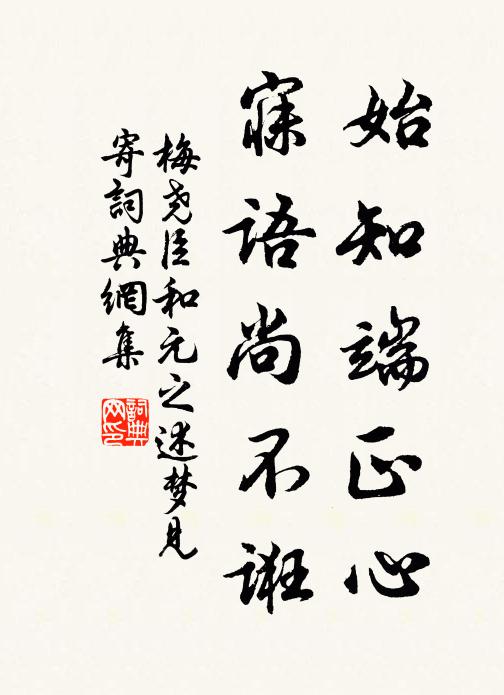 始知端正心
寐語尚不誑
梅尧臣和元之述梦見
寄詞典網集
詞典
网印